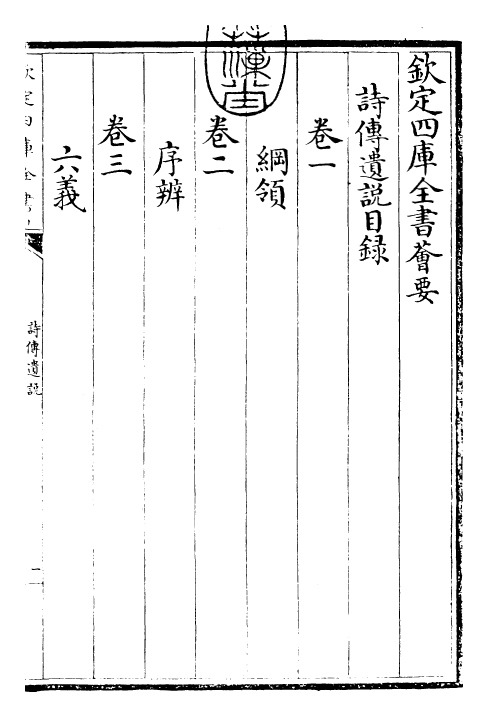 欽定四庫全書薈要
詩傳遺説目録
卷一
綱領
卷二
序辨
卷三
六義
欽定四庫全書
詩傳遺説